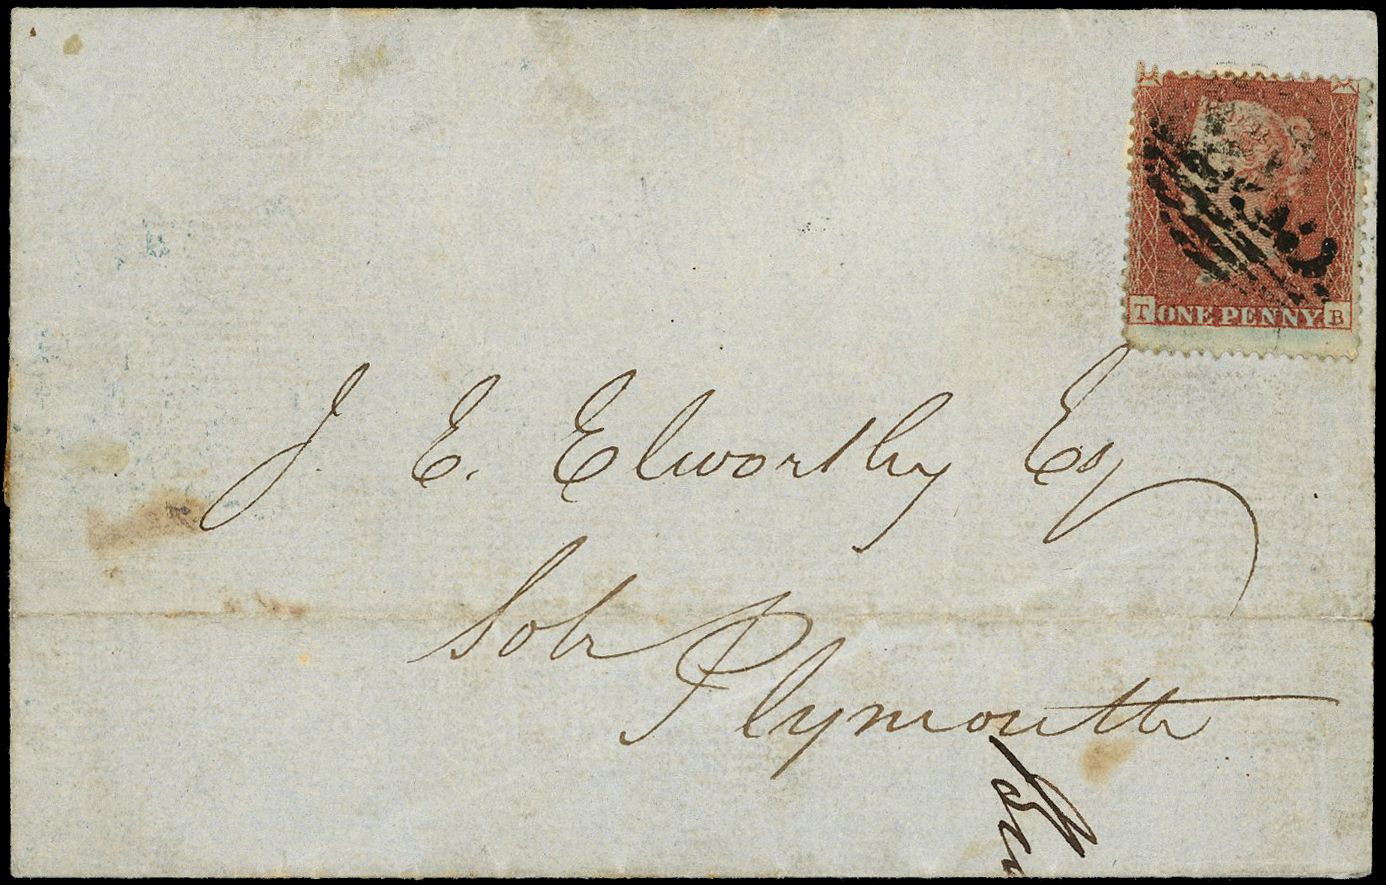 T ONE PENNY. B
J. E. Elworthy Esq
Solr
Plymouth